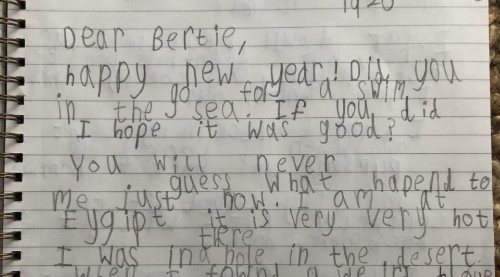 1920
Dear Bertie,
happy new year! Did you
go for a swim
in the sea. If you did
I hope it was good?
You will never
guess what hapend to
me just now. I am at
Eygipt it is very very hot
there
I was in a hole in the desert.
When I found a